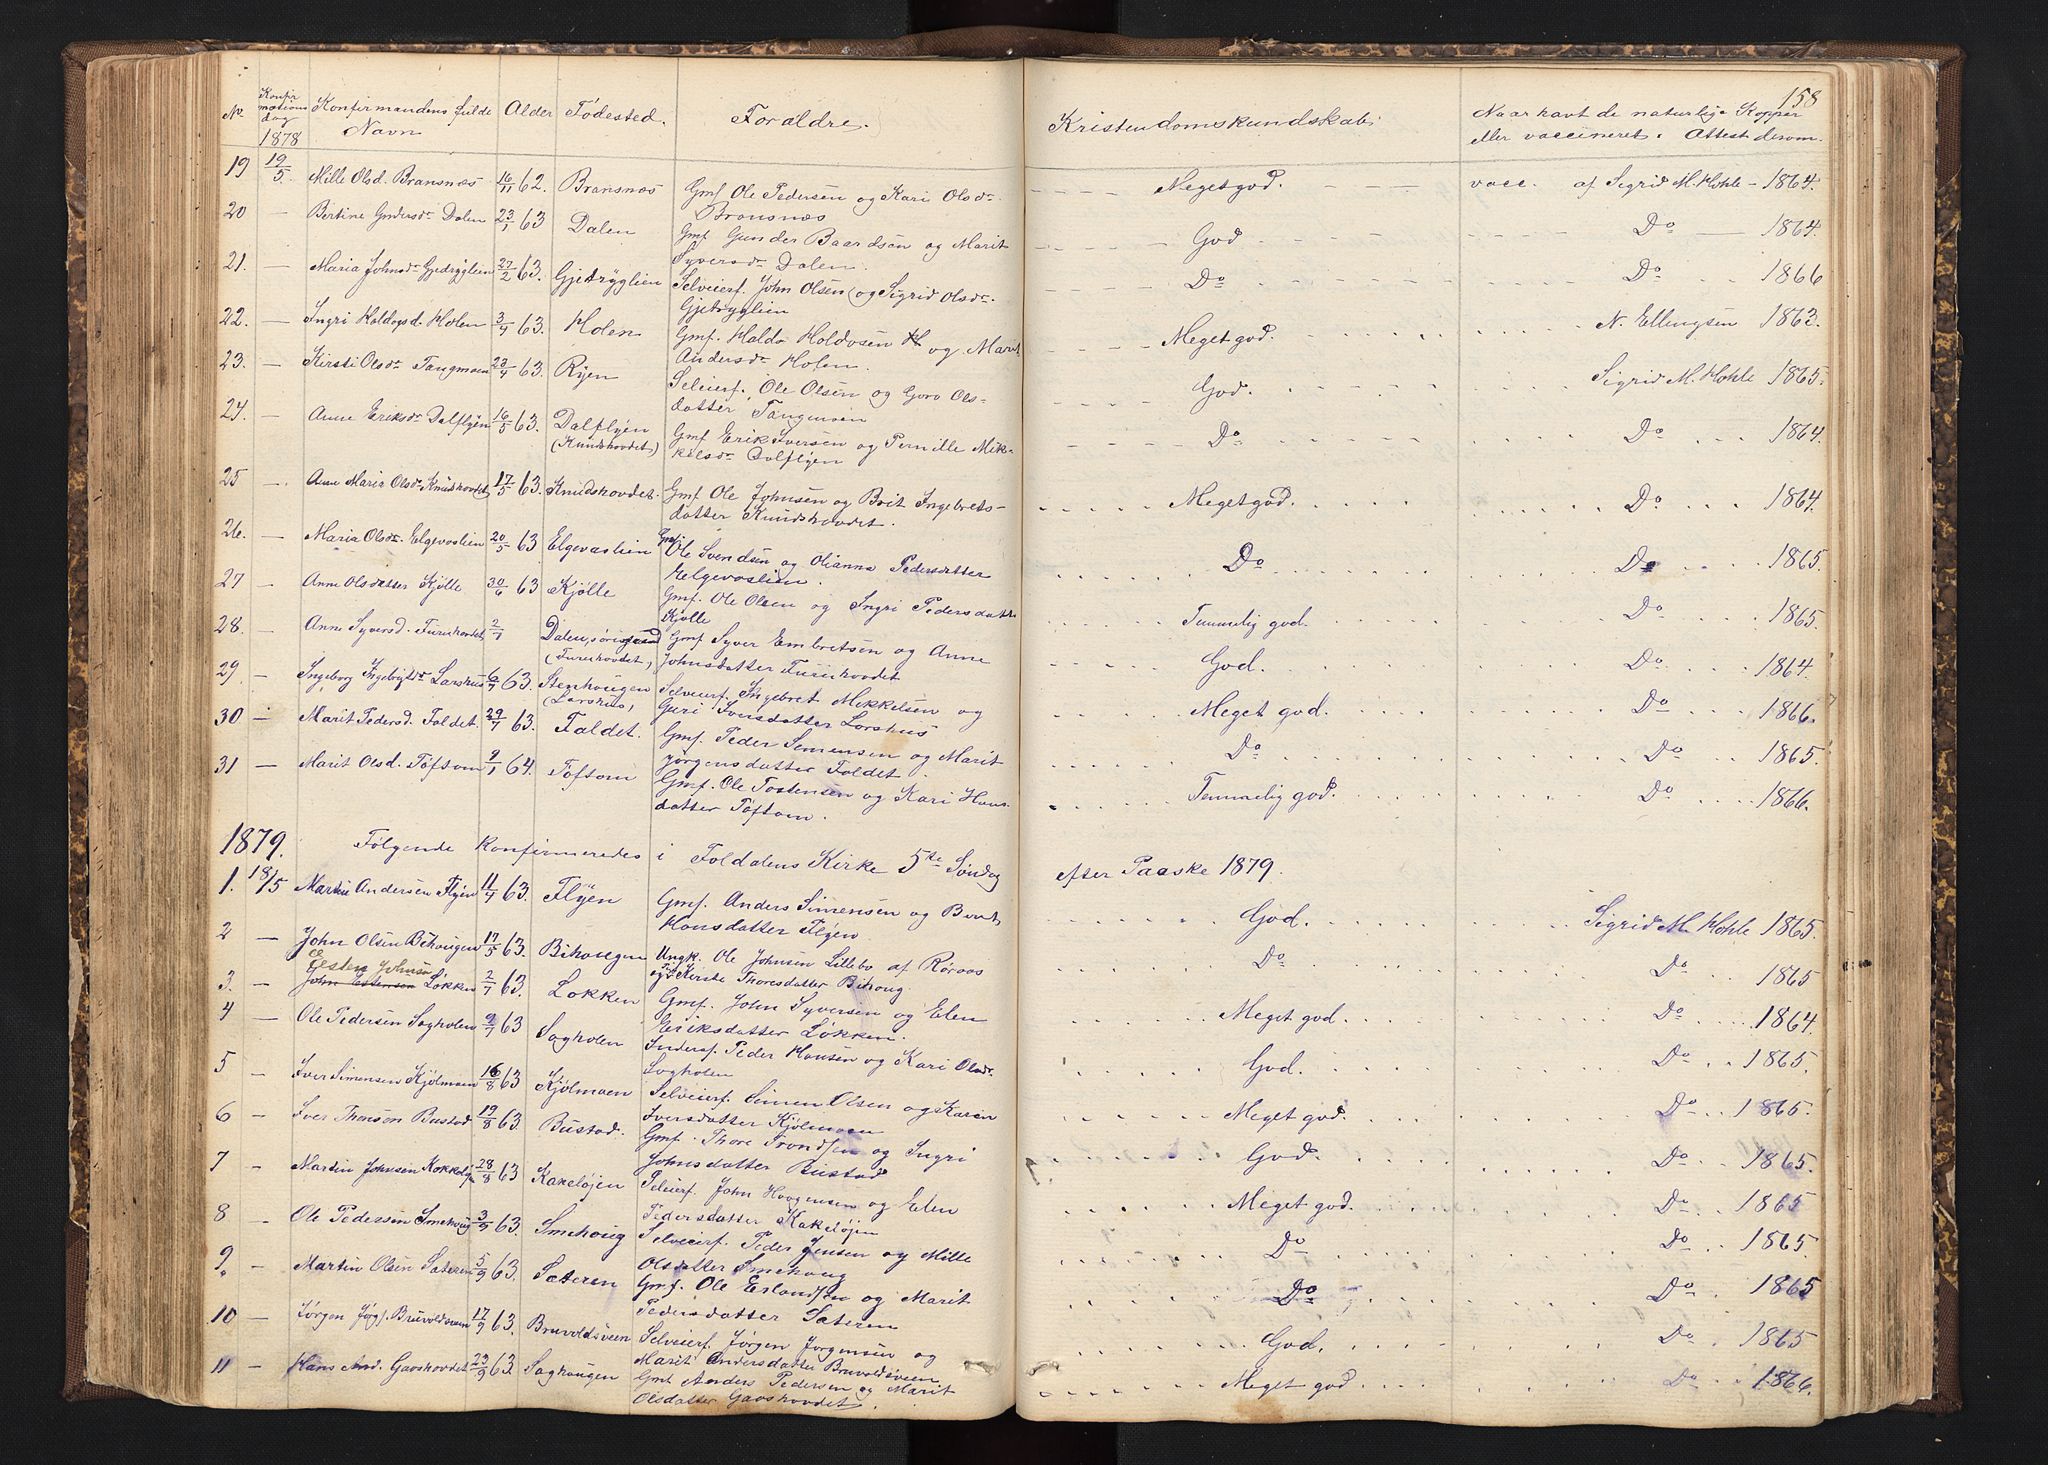 158
No Konfirmations dag Konfirmandens fulde Navn Alder Fødested. Forældre. Kristendomskundskab. Naar havt de naturlige Kopper eller vaccineret. Attest derom.
1878
19 19/5. Mille Olsd. Bransnæs 16/11 62. Bransnæs Gmf Ole Pedersen og Kari Olsdr. Meget god. vacc. af Sigrid M. Hohle - 1864.
Bransnæs
20 — Bertine Gundersdr Dalen 23/1 63 Dalen Gmf Gunder Baardsen og Marit God Do 1864.
Syversdr Dalen.
21. — Maria Johnsdr Gjedryglien 27/2 63. Gjetryglien Selveierf. John Olsen (og Sigrid Olsdr. Do Do 1866
Gjetryglien
22. — Ingri Haldosd. Holen 3/4 63. Holen Gmf. Haldo Holdosen og Marit Meget god. N. Ellingsen 1863.
Andersdr Holen.
23. — Kirsti Olsdr Tangmoen 23/4 63. Ryen Seleierf. Ole Olsen og Goro Ols- God. Sigrid M. Hohle 1865.
datter Tangmoen
24. — Anne Eriksdr Dalflyen 16/5 63. Dalflyen (Knudshovdet) Gmf Erik Iversen og Pernille Mik- Do Do 1864.
kelsdr Dalflyen
25 — Anne Maria Olsdr Knudshovdet 17/5 63. Knudshovdet. Gmf Ole Johnsen og Brit Ingebrets- Meget god. Do 1864
datter Knudshovdet.
26. — Maria Olsdr. Elgevaslien 20/5 63 Elgevaslien Gmf. Ole Svendsen og Olianna Pedersdatter Do Do 1865.
Elgevoslien.
27 — Anne Olsdatter Kjølle 30/6 63 Kjölle Gmf. Ole Olsen og Ingri Pedersdatter Temmelig god. Do 1865.
Kjölle
28. — Anne Syversd. Furuhovdet 2/7 Dalen, (Furuhovdet) Gmf Syver Embretsen og Anne God. Do 1864
Johnsdatter Furuhovdet
29 — Ingeborg Ingebrigtsdr Larshus 6/7 63. Stenhougen (Larshus) Selveierf. Ingebret Mikkelsen og Meget god. Do 1866.
Guri Iversdatter Larshus
30. — Marit Pedersd. Foldet. 29/7 63. Faldet. Gmf. Peder Simensen og Marit Do Do 1865.
Jörgensdatter Foldet.
31 — Marit Olsd. Töftom 9/1 64. Töftom Gmf. Ole Tostensen og Kari Hans- Temmelig god. Do 1866.
datter Töftom.
1879. Følgende konfirmeredes i Foldalens Kirke 5te Søndag efter Paaske 1879.
1. 18/5 Martin Andersen Flyen 11/4 63. Flyen Gmf. Anders Simensen og Berit God. Sigrid M. Hohle 1865.
Hansdatter Flyen
2 — John Olsen Bihougen 17/5 63. Bihougen Ungk. Ole Johnsen Lillebo af Røraas Do Do 1865
og Kirste Thoresdatter Bihoug.
Østen Johnsen
3. — John Estensen Løkken 2/7 63. Løkken Gmf. John Syversen og Elen Meget god. Do 1864.
Eriksdatter Løkken.
4 — Ole Pedersen Sagholen 9/7 63 Sagholen Inderst. Peder Hansen og Kari Olsdr. God. Do 1865.
Sagholen
5 — Iver Simensen Kjølmoen 16/8 63 Kjölmoen Selveierf. Simen Olsen og Karen Meget god. Do 1865.
Iversdatter Kjölmoen
6 — Iver Thoresen Bustad 19/8 63. Bustad. Gmf. Thore Trondsen og Ingri God. Do 1865.
Johnsdatter Bustad
7 — Martin Johnsen Kokkeløjen 28/8 63 Kakeløjen Seleierf. John Haagensen og Elen Meget god. Do 1865
Pedersdatter Kakeløjen
8 — Ole Pedersen Smehoug 3/9 63. Smehoug Selveierf. Peder Jensen og Mille Do Do 1865.
Olsdatter Smehoug
9. — Martin Olsen Sæteren 5/9 63. Sæteren Gmf. Ole Erlandsen og Marit Do Do 1865
Pedersdatter Sæteren
10 — Jørgen Jörgs. Bruvoldsveen 17/9 63. Bruvoldsveen Selveierf. Jørgen Jørgensen og God. Do 1865
Marit Andersdatter Bruvoldsveen
11 — Hans And. Gavshovdet 23/9 63. Saghougen Gmf Anders Pedersen og Marit Meget god. Do 1866.
Olsdatter Gavshovdet.